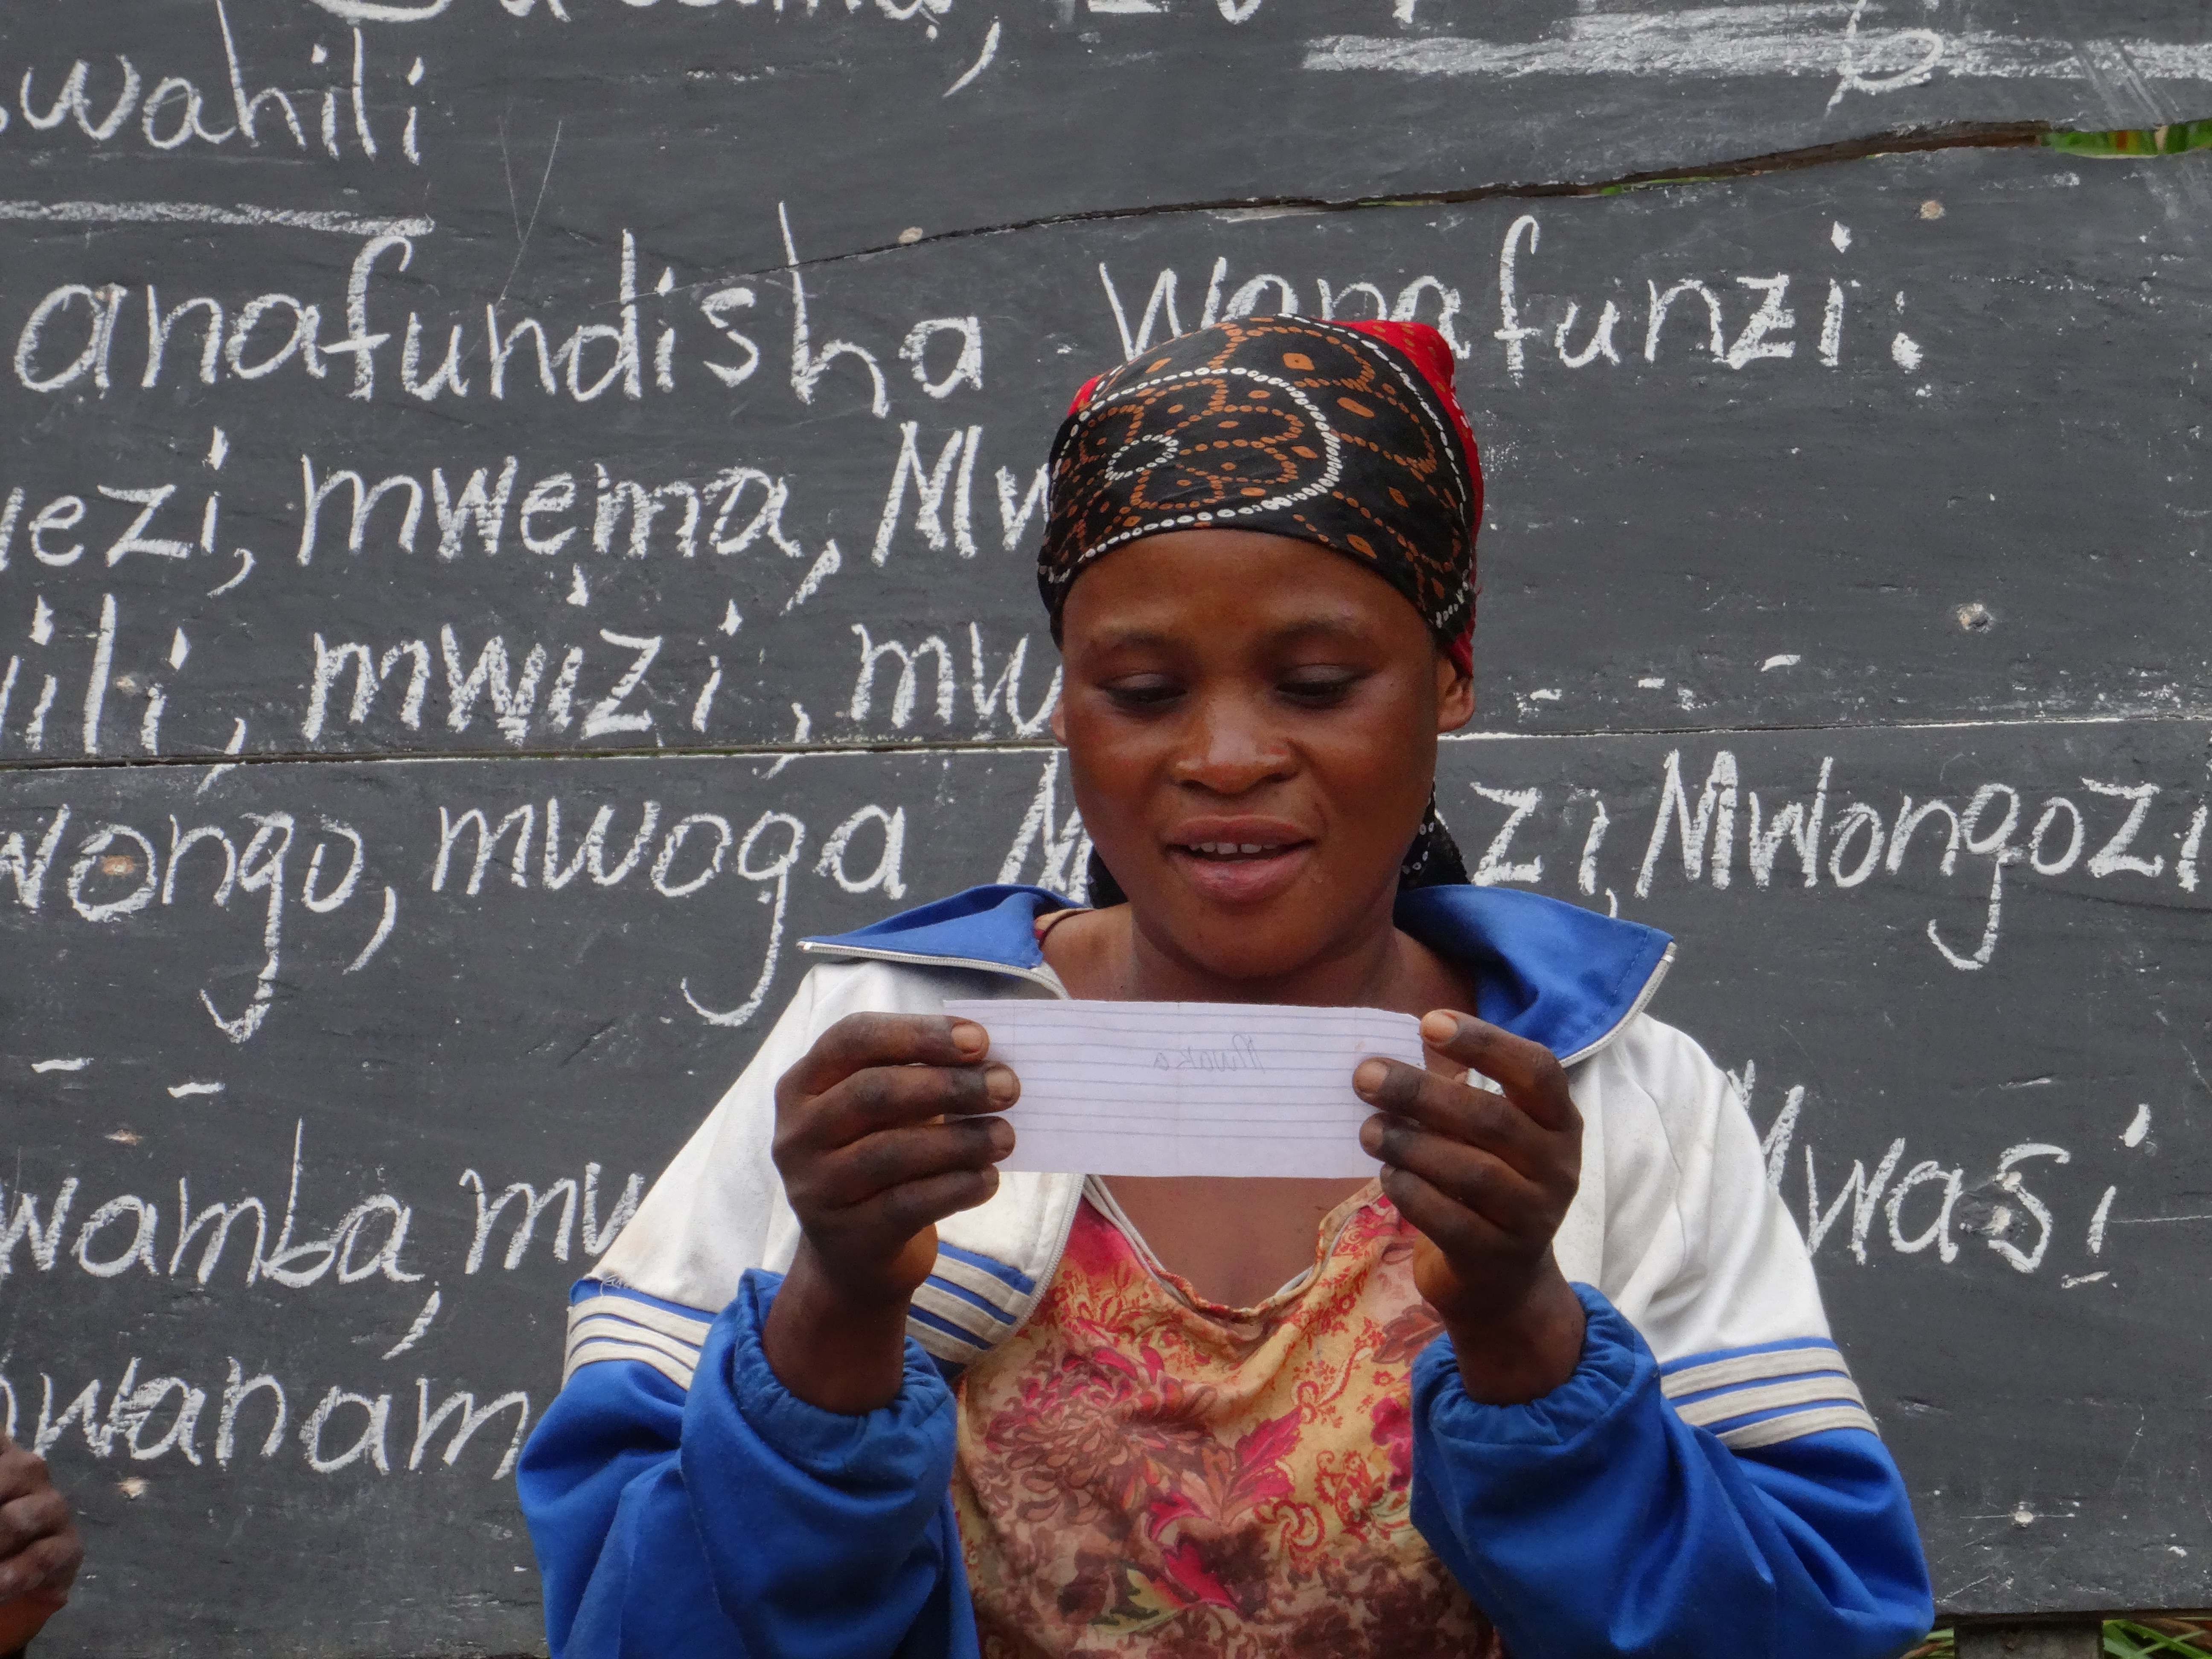 wahili
anafundisha wanafunzi.
ezi, mwema, Mw
ili, mwizi, mw
wongo, mwoga M zi, Mwongozi
wamba, mw Mwasi
wanam
Mwaka